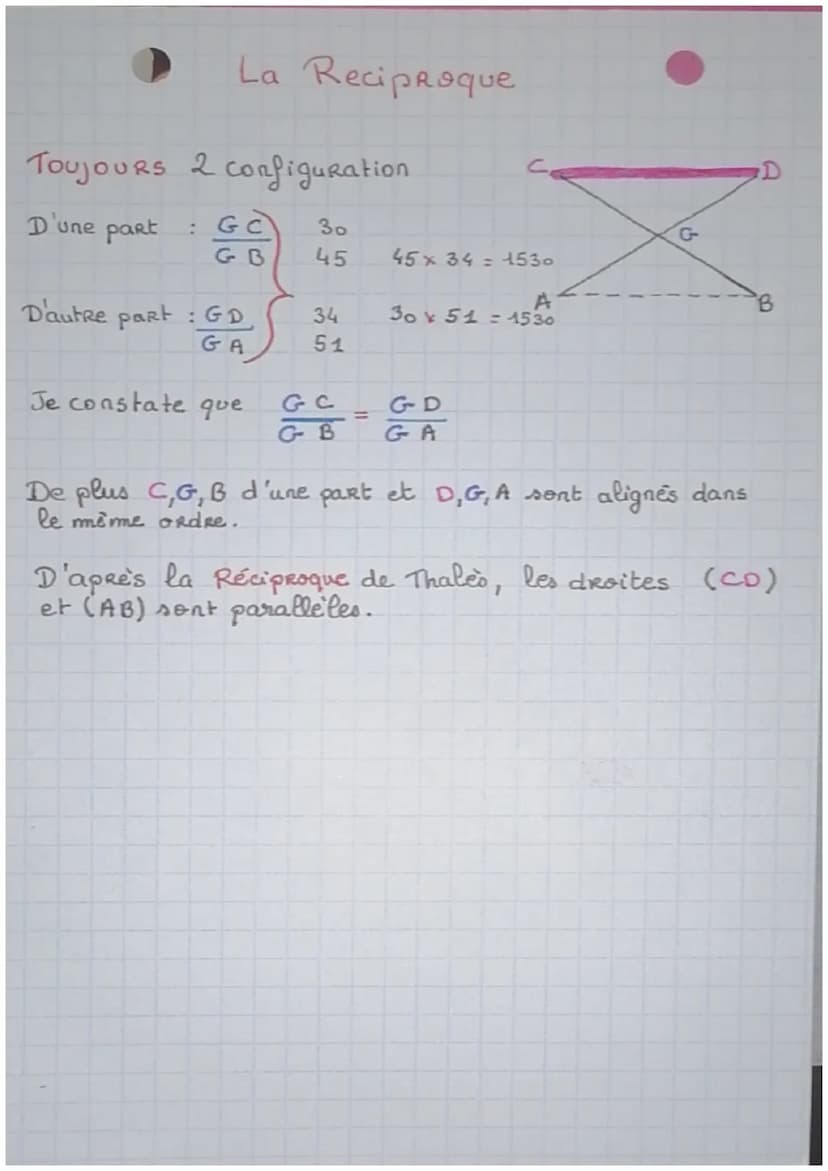 La Reciproque
Toujours 2 configuration
D'une part : GC 30
GB 45 45 x 34 = 1530
D'autre part : GD 34 30 x 51 = 1530
GA 51
C D
G
A B
Je constate que GC = GD
GB GA
De plus C,G,B d'une part et D,G,A sont alignés dans
le même ordre.
D'après la Réciproque de Thalès, les droites (CD)
et (AB) sont parallèles.